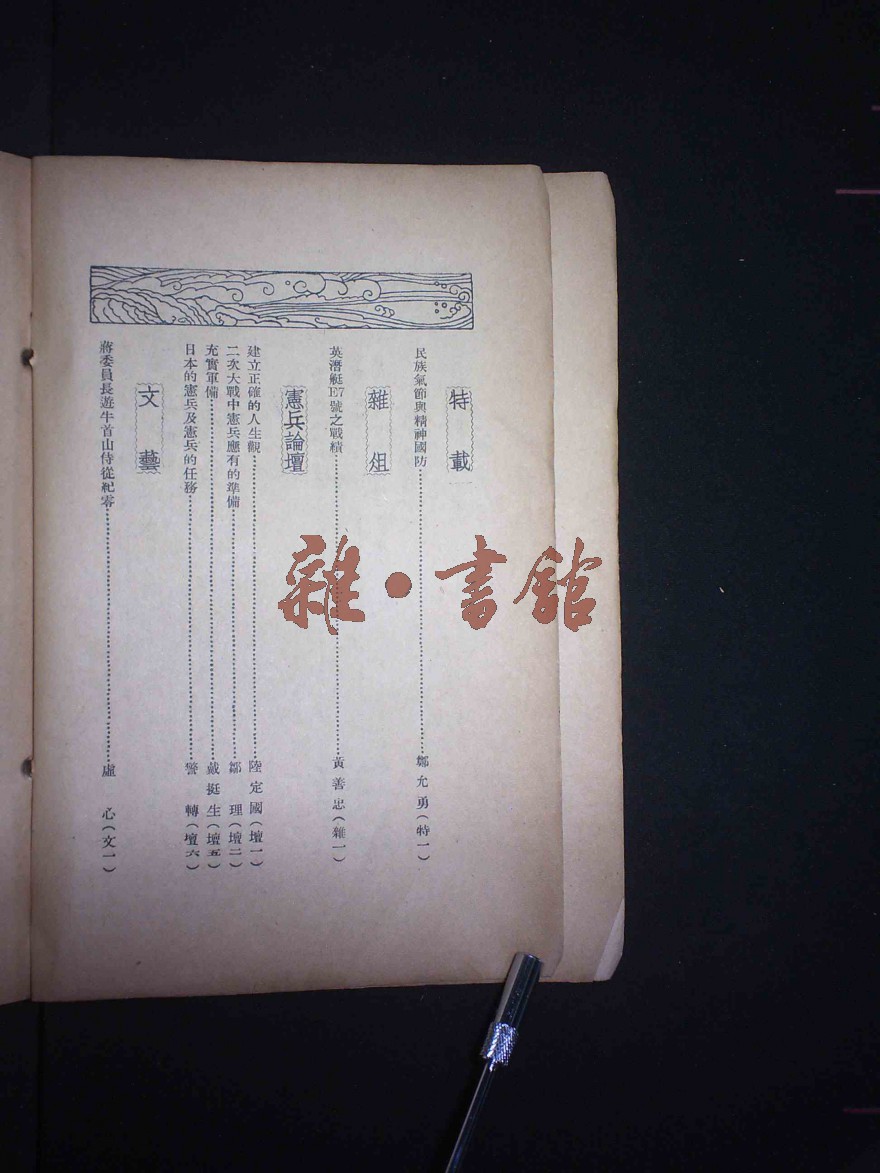 特載
民族氣節與精神國防……鄒允勇(特一)
雜俎
英潛艇E7號之戰績……黃善忠(雜一)
憲兵論壇
建立正確的人生觀……陸定國(壇一)
二次大戰中憲兵應有的準備……鄒理(壇二)
充實軍備……戴挺生(壇五)
日本的憲兵及憲兵的任務……警轉(壇六)
文藝
蔣委員長遊牛首山侍從紀零……虛心(文一)
雜·書館